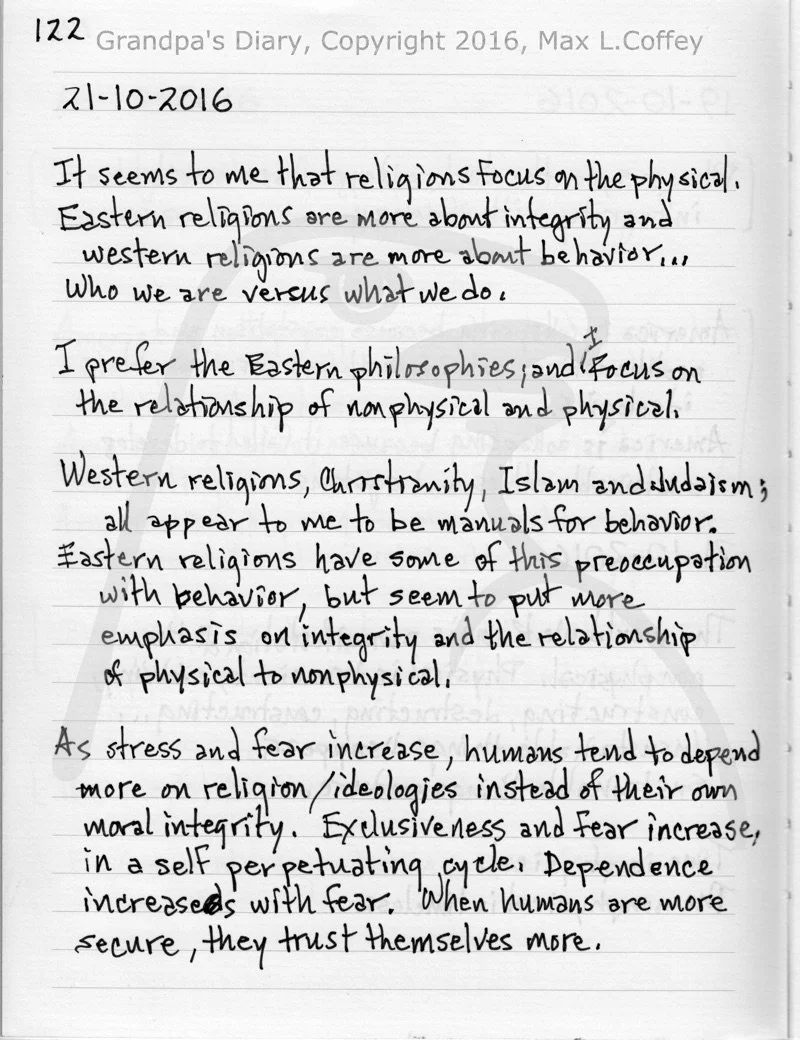 122
Grandpa's Diary, Copyright 2016, Max L.Coffey
21-10-2016
It seems to me that religions focus on the physical.
Eastern religions are more about integrity and
western religions are more about behavior...
Who we are versus what we do.
I prefer the Eastern philosophies; and I focus on
the relationship of nonphysical and physical.
Western religions, Christianity, Islam and Judaism;
all appear to me to be manuals for behavior.
Eastern religions have some of this preoccupation
with behavior, but seem to put more
emphasis on integrity and the relationship
of physical to nonphysical.
As stress and fear increase, humans tend to depend
more on religion/ideologies instead of their own
moral integrity. Exclusiveness and fear increase,
in a self perpetuating cycle. Dependence
increases with fear. When humans are more
secure, they trust themselves more.